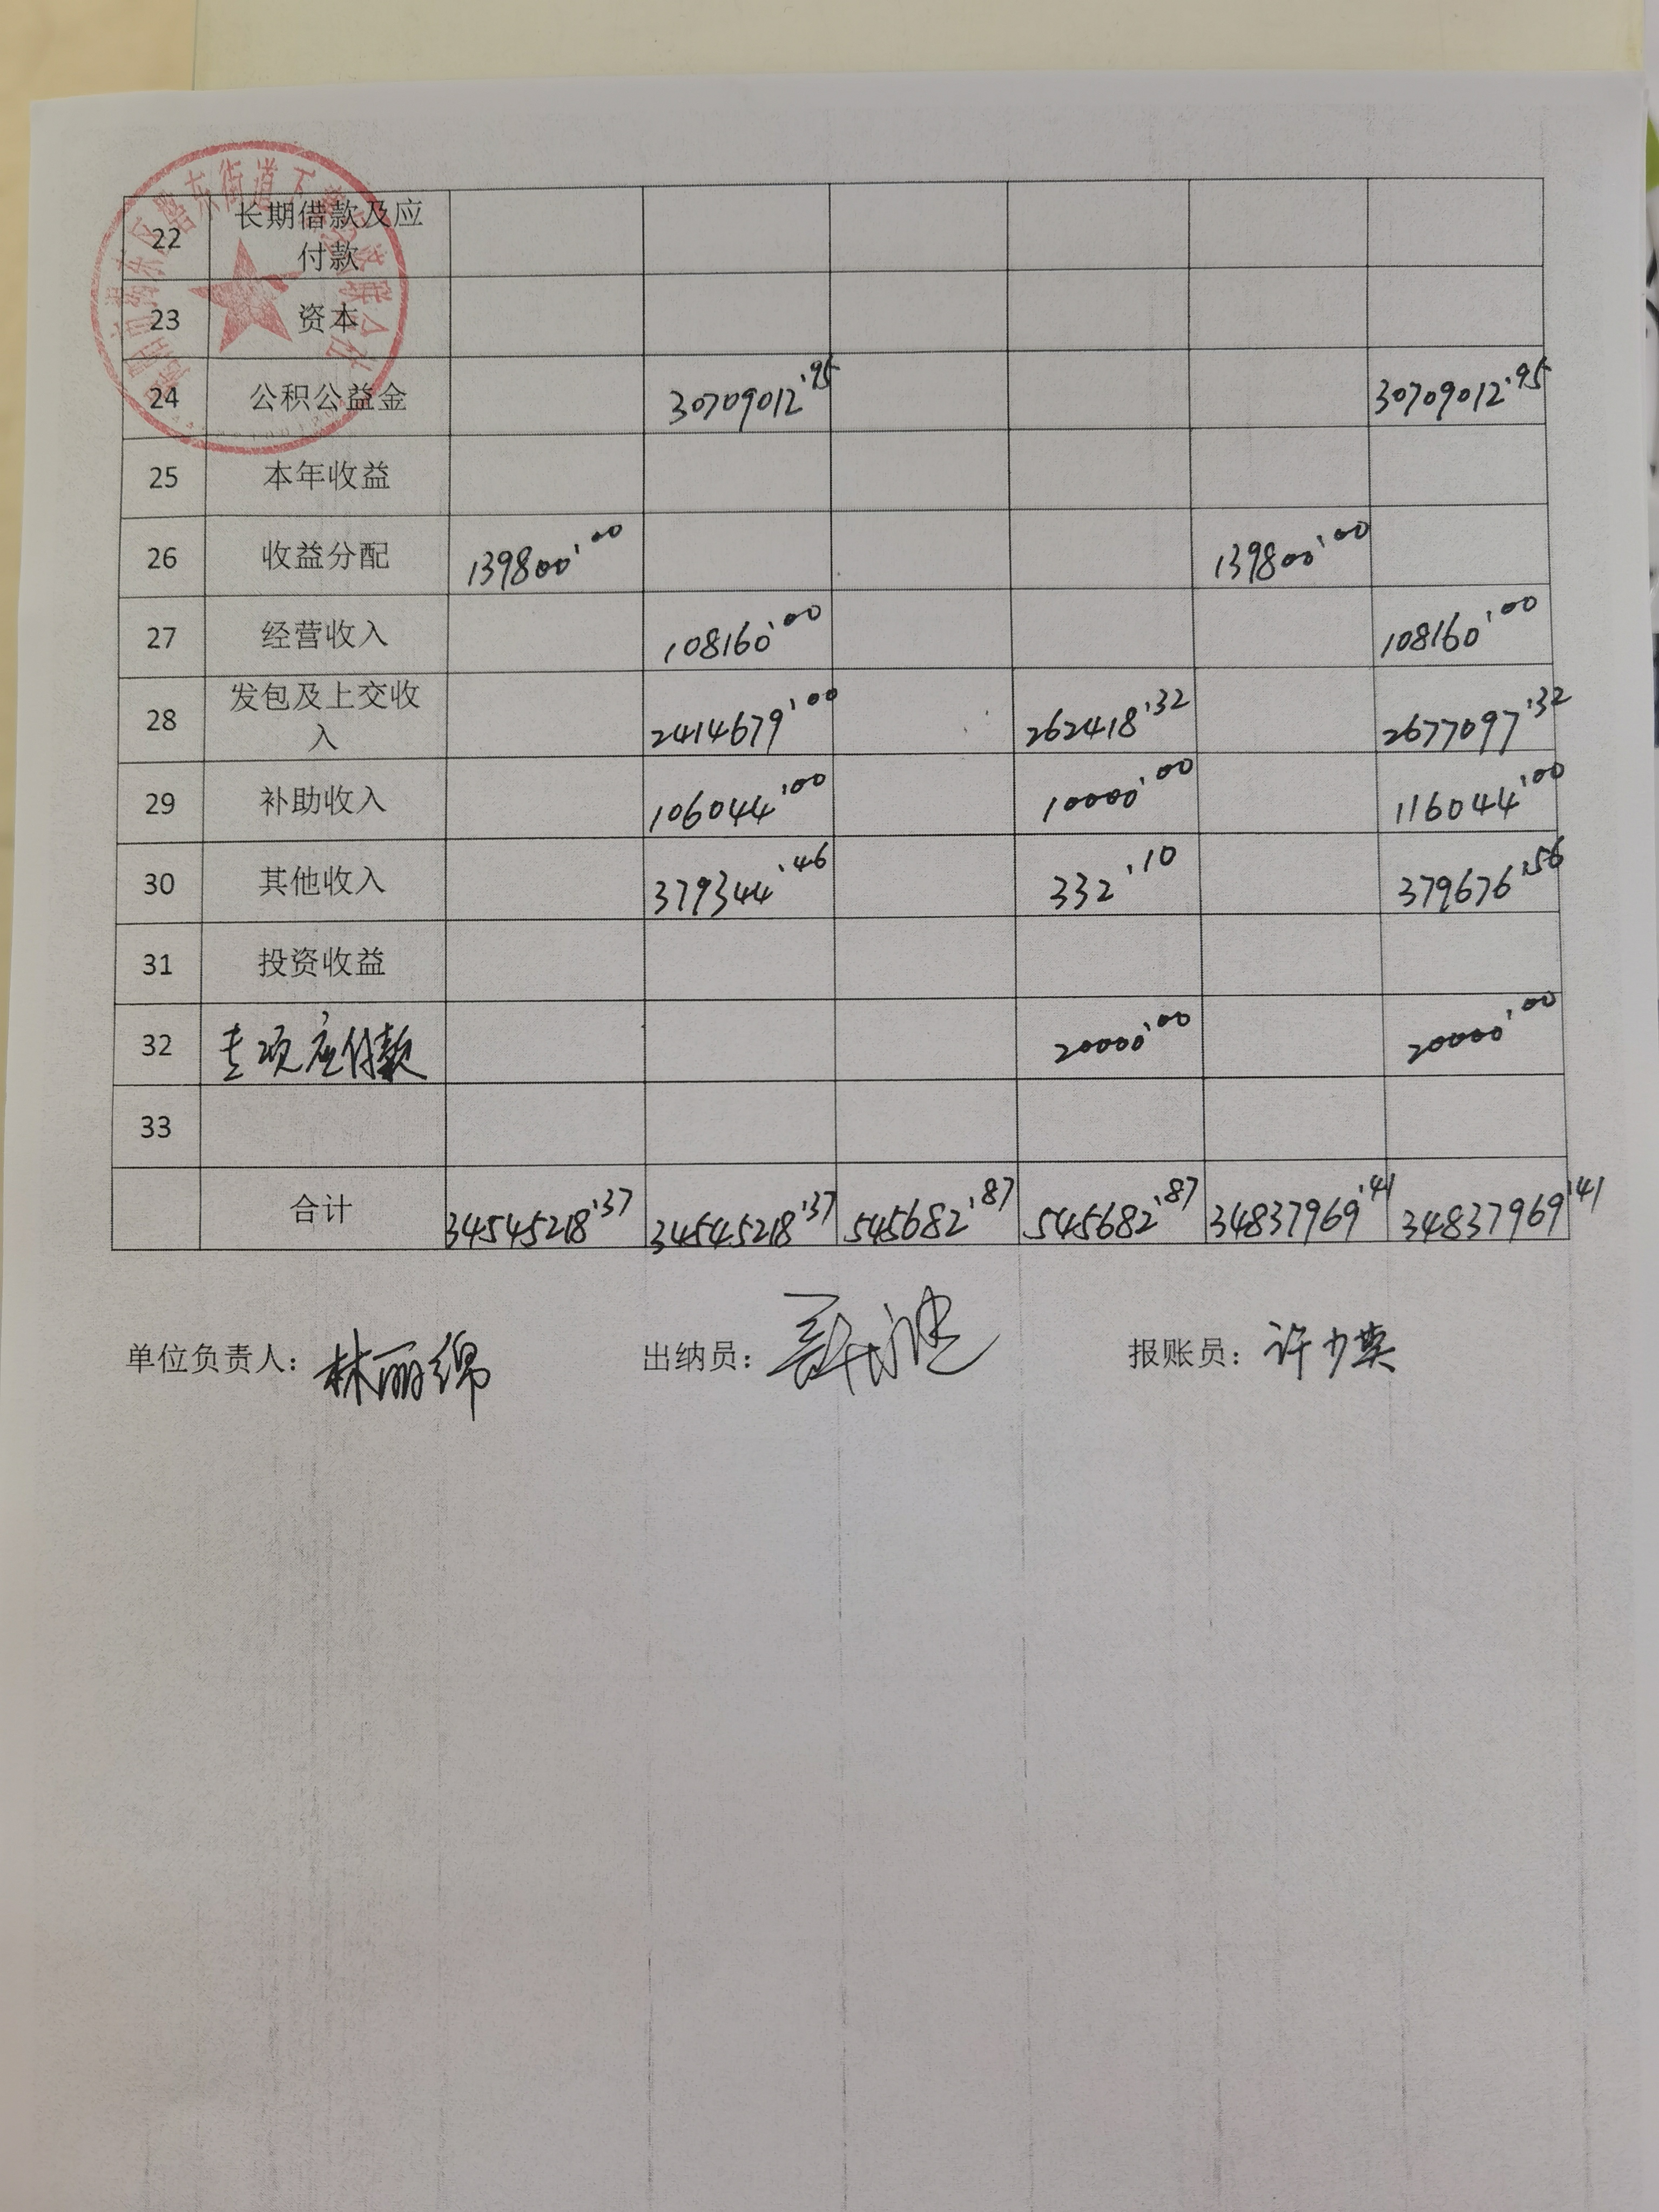 22 长期借款及应
付款
23 资本
24 公积公益金 30709012.95 30709012.95
25 本年收益
26 收益分配 139800.00 139800.00
27 经营收入 108160.00 108160.00
28 发包及上交收
入 2414679.00 262418.32 2677097.32
29 补助收入 106044.00 10000.00 116044.00
30 其他收入 379344.46 332.10 379676.56
31 投资收益
32 专项应付款 20000.00 20000.00
33
合计 34545218.37 34545218.37 545682.87 545682.87 34837969.41 34837969.41
单位负责人：林丽绵 出纳员： 报账员：许少英